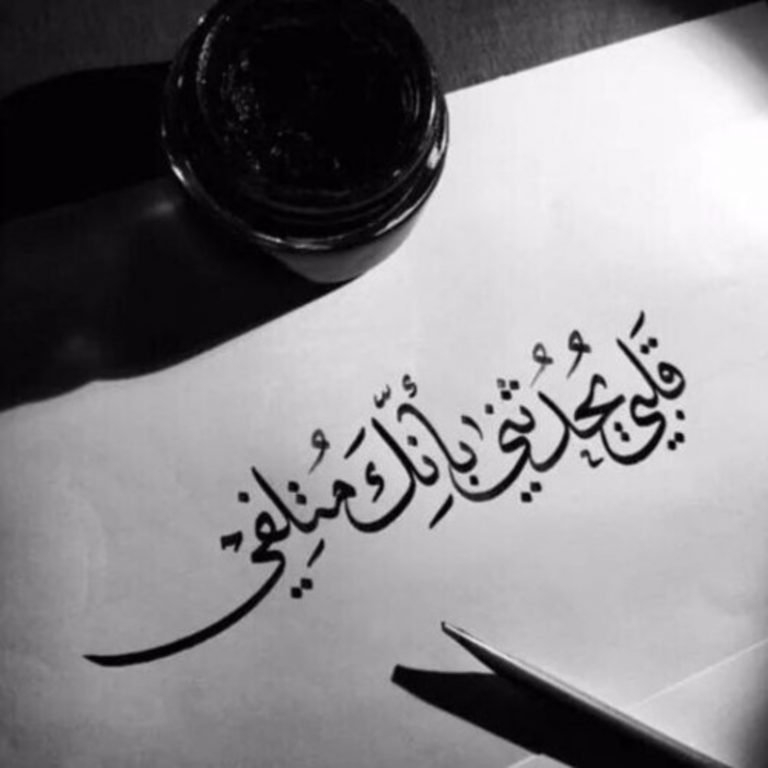 قلبي يُحدُثُني بأنّكَ مُتلِفي